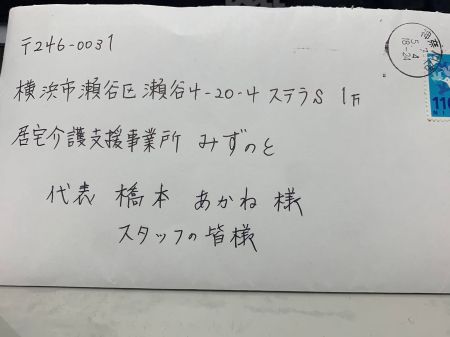 〒246-0031
横浜市瀬谷区瀬谷4-20-4 ステラS 1F
居宅介護支援事業所 みずのと
代表 橋本 あかね 様
スタッフの皆様
110